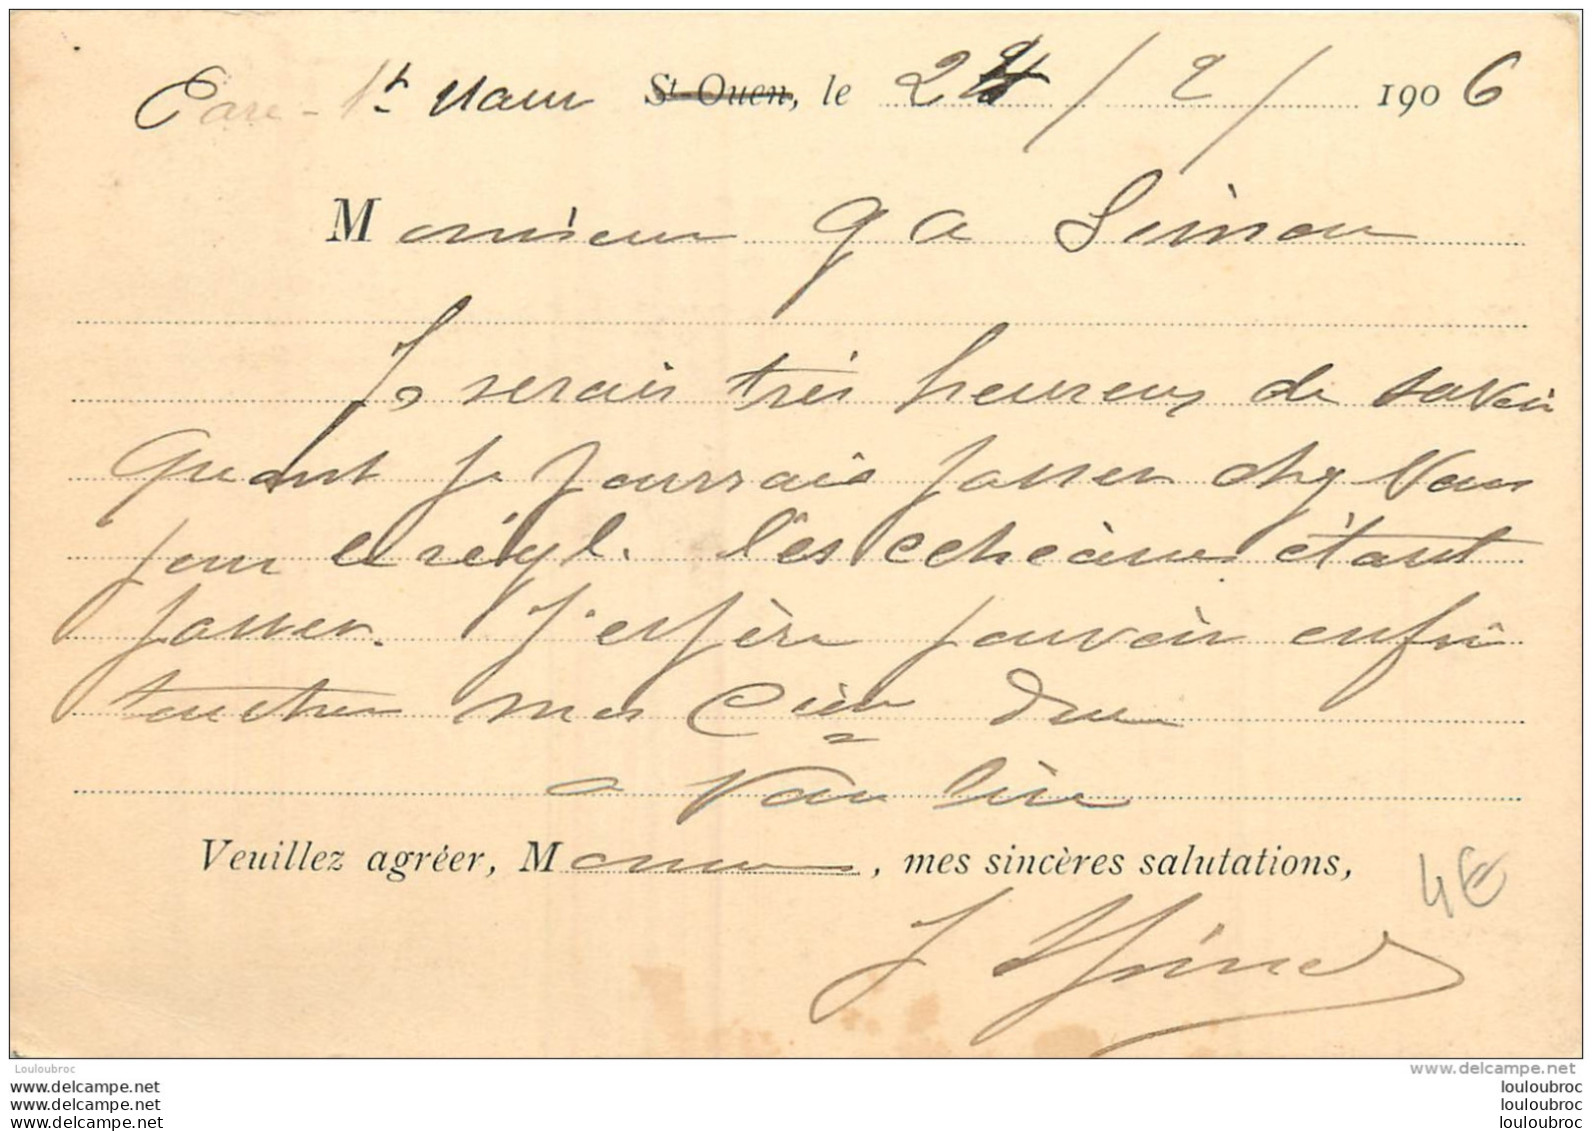 Parc-St Maur St-Ouen, le 24 / 2 / 1906
Monsieur G A Simon
Je serais très heureux de savoir
quant je pourrais passer chez Vous
pour le régl. les echéance étant
passer. J'espère pouvoir enfin
toucher mes
a Vous lire
Veuillez agréer, Monsieur, mes sincères salutations,
J
4€
Louloubroc
www.delcampe.net
www.delcampe.net
louloubroc
www.delcampe.net
louloubroc
www.delcampe.net
louloubroc